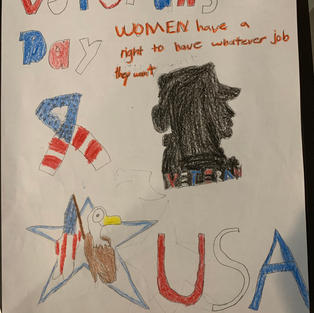 Veterans
Day
WOMEN have a
right to have whatever job
they want
USA